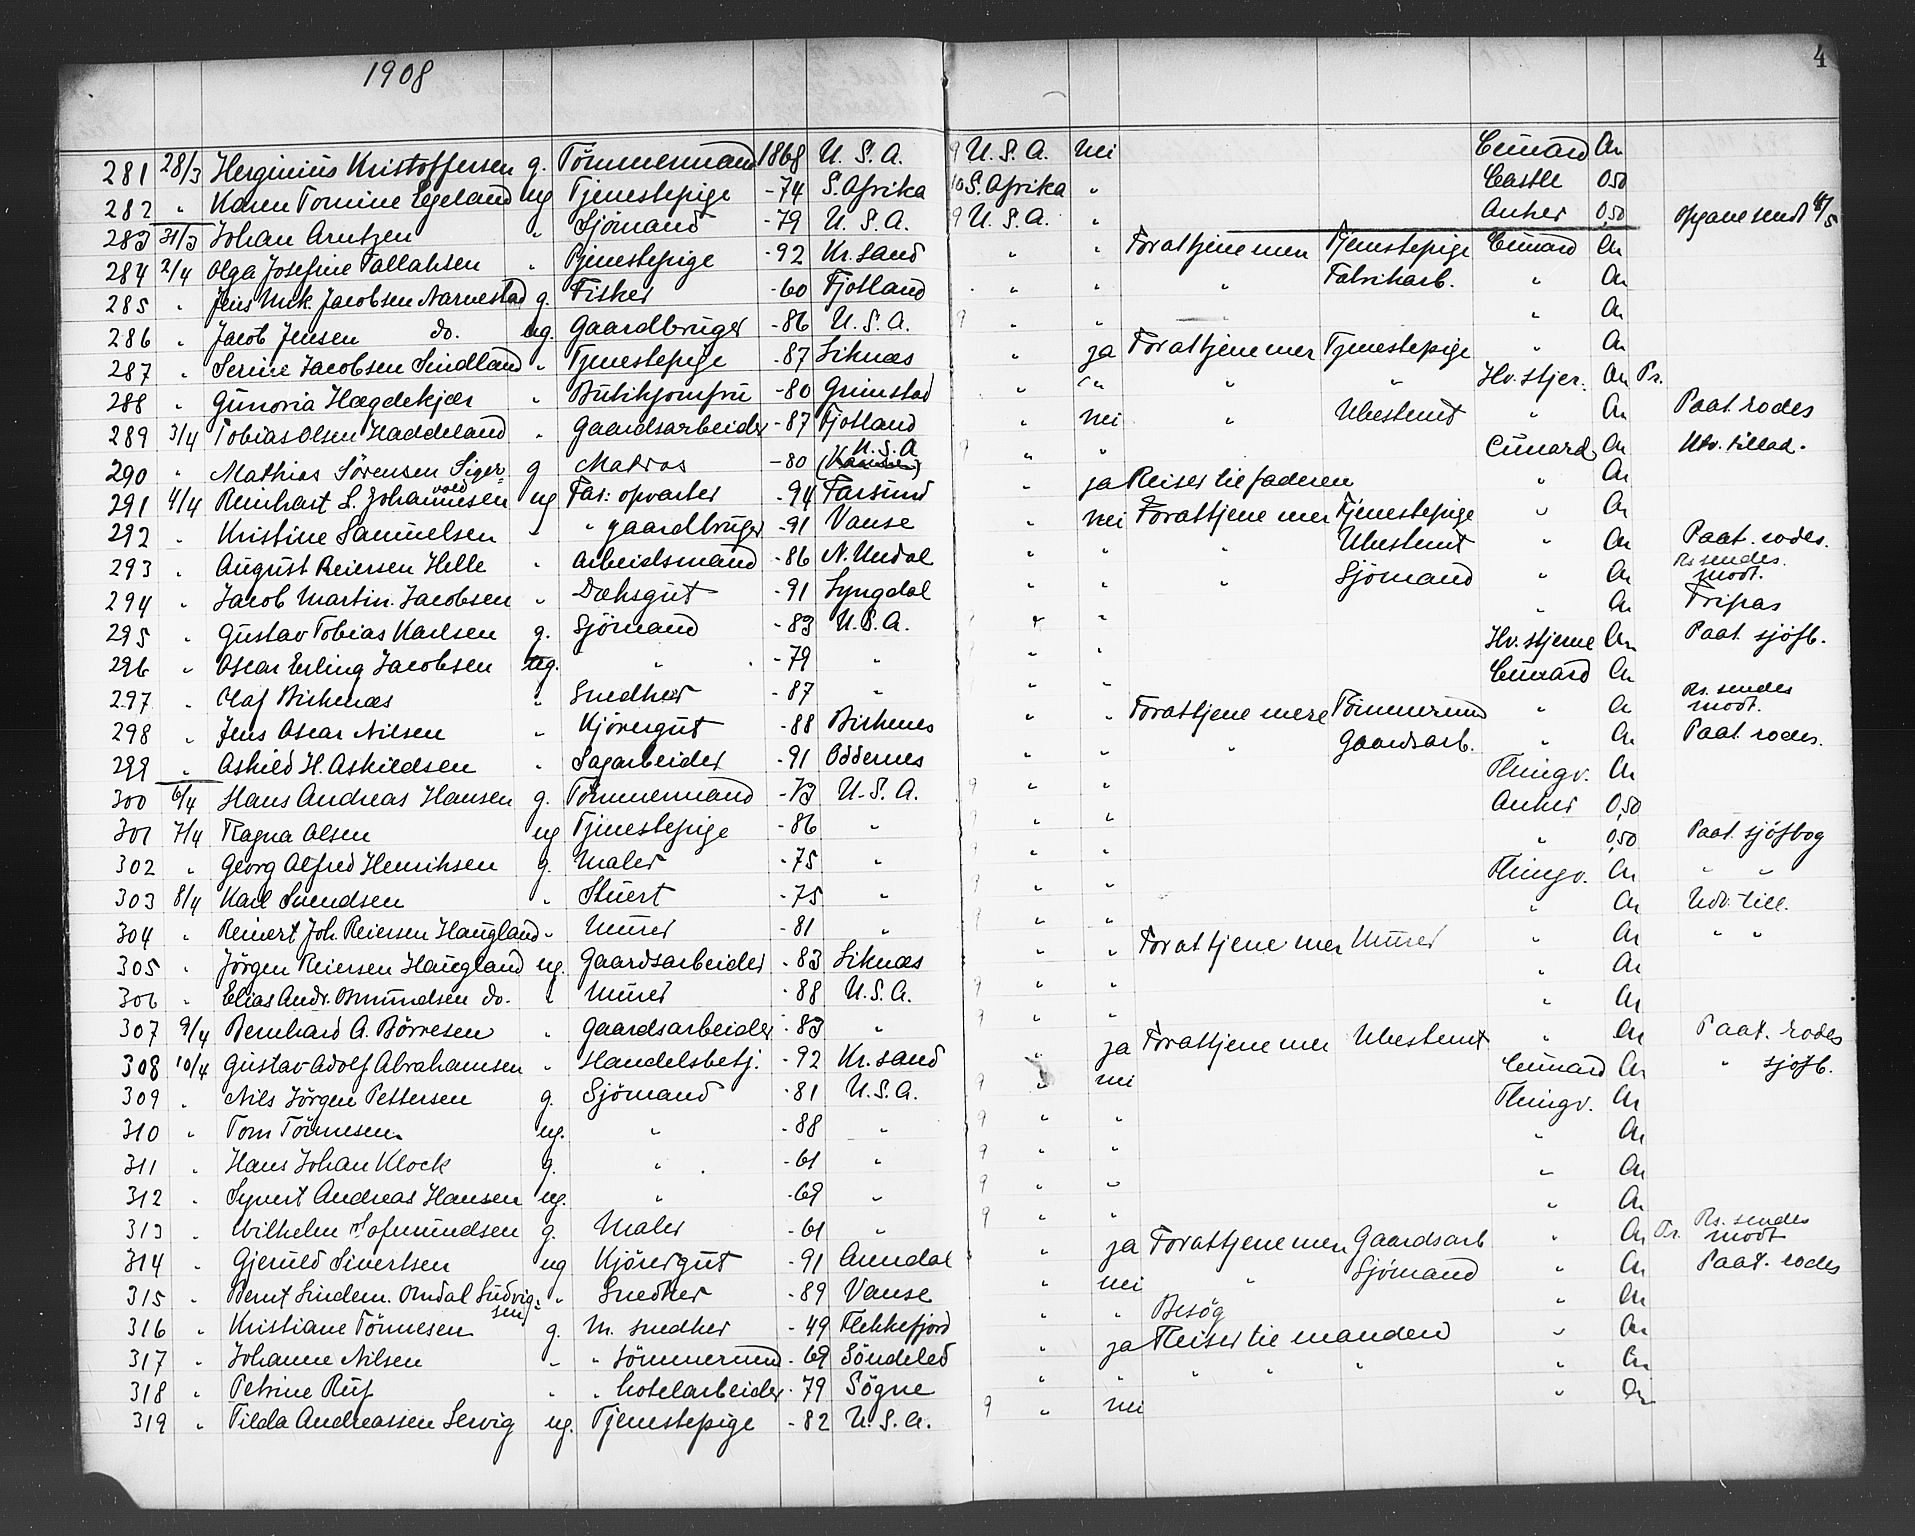 1908
4
281 28/3 Herginius Kristoffersen g. Tömmermand 1868 U. S. A. 9 U. S. A. nei Cunard An
282 " Karen Tomine Egeland ug Tjenestepige -74 S. Afrika 10 S. Afrika " Castle 0,50
283 31/3 Johan Arntzen " Sjömand -79 U. S. A. 9 U. S. A. " Anker 0,50 opgave sendt 4/5
284 2/4 Olga Josefine Tallaksen " Tjenestepige -92 Kr. sand " " Forattjene mer Tjenestepige Cunard An
285 " Jens Mik. Jacobsen Narvestad g. Fisker -60 Fjotland " " " Fabrikarb. " An
286 " Jacob Jensen do. ug. Gaardbruger -86 U. S. A. 9 " " " An
287 " Serine Jacobsen Sindland " Tjenestepige -87 Liknæs " ja Forattjene mer Tjenestepige " An
288 " Gunoria Hægdekjær " Butikjomfru -80 Grimstad " " " " Hv. stjer. An Pr.
289 3/4 Tobias Olsen Haddeland " Gaardsarbeider -87 Fjotland " nei " Ubestemt " An Paat. rodes
290 " Mathias Sörensen Siger= vold g Matros -80 U. S. A 9 " " Cunard An Utv. tillad.
291 4/4 Reinhart S. Johannesen ug Far: opvarter -94 Farsund " ja Reiser til faderen " An
292 " Kristine Samuelsen " " gaardbruger -91 Vanse " nei Forattjene mer Tjenestepige " An
293 " August Reiersen Helle " Arbeidsmand -86 N. Undal " " " Ubestemt " An Paat. rodes.
294 " Jacob Martin Jacobsen " Dæksgut -91 Lyngdal " " " Sjömand " An Rs sendes. modt.
295 " Gustav Tobias Karlsen g. Sjömand -83 U. S. A. " " " An Fripas
296 " Oscar Erling Jacobsen ug. " -79 " " " Hv. stjerne An Paat. sjöfb.
297 " Olaf Birkenæs " Snedker -87 " " " Cunard An
298 " Jens Oscar Nilsen " Kjöregut -88 Birkenes " " Forattjene mere Tömmermd " An Rs. sendes modt.
299 " Askild H. Askildsen " Sagarbeider -91 Oddernes " " " Gaardsarb. " An Paat. rodes.
300 6/4 Hans Andreas Hansen g. Tömmermand -73 U. S. A. 9 " " Thingv. An
301 7/4 Ragna Olsen ug Tjenestepige -86 " 9 " " Anker 0,50
302 " Georg Alfred Henriksen g. Maler -75 " 9 " " " 0,50 Paat. sjöfbog
303 8/4 Karl Svendsen " Stuert -75 " 9 " " Thingv. An " "
304 " Reinert Joh. Reiersen Haugland " Murer -81 " 9 " " " An Udv. till.
305 " Jörgen Reiersen Haugland ug. Gaardsarbeider -83 Liknæs " " Forattjene mer Murer " An " "
306 " Elias Andr. Omundsen do. " Murer -88 U. S. A. 9 " " " An
307 9/4 Bernhard A. Börresen " Gaardsarbeider -83 " 9 " " " An
308 10/4 Gustav Adolf Abrahamsen " Handelsbetj. -92 Kr. sand " ja Forattjene mer Ubestemt " An Paat. rodes
309 " Nils Jörgen Pettersen g. Sjömand -81 U. S. A. 9 " nei Cunard An " sjöfb.
310 " Tom Tönnesen ug. " -88 " 9 " " Thingv. An
311 " Hans Johan Klock g. " -61 " 9 " " " An
312 " Syvert Andreas Hansen ug. " -69 " 9 " " " An
313 " Wilhelm Tofmundsen g. Maler -61 " 9 " " " An
314 " Gjeruld Sivertsen ug Kjöregut -91 Aamdal " ja Forattjene mer Gaardsarb " An Pr. Rs. sendes modt
315 " Bernt Sindem. Omdal Ludvig= sen " Snedker -89 Vanse " nei " Sjömand " An Paat. rodes
316 " Kristiane Tönnesen g. m. snedker -49 Flekkefjord " " Besög " An
317 " Johanne Nilsen " " tömmermd -69 Söndeled " ja Reiser til manden " An
318 " Petrine Ruf " " hotelarbeider -79 Sögne " " " " " " An
319 " Tilda Andreassen Servig ug. Tjenestepige -82 U. S. A. 9 " nei " An